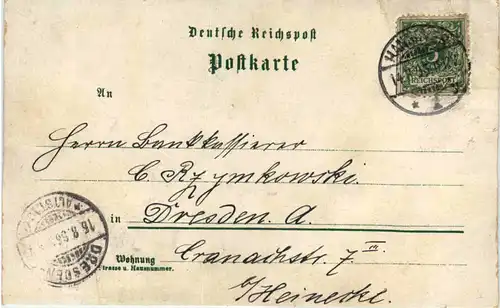 Deutsche Reichspost
Postkarte
5
REICHSPOST
An
Herrn Bankkassierer
C. Rzymkowski.
in Dresden. A.
Wohnung Cranachstr. 7 III
(Strasse u. Hausnummer.
b/Heinecke.
DRESDEN
ALTST.
16.8.